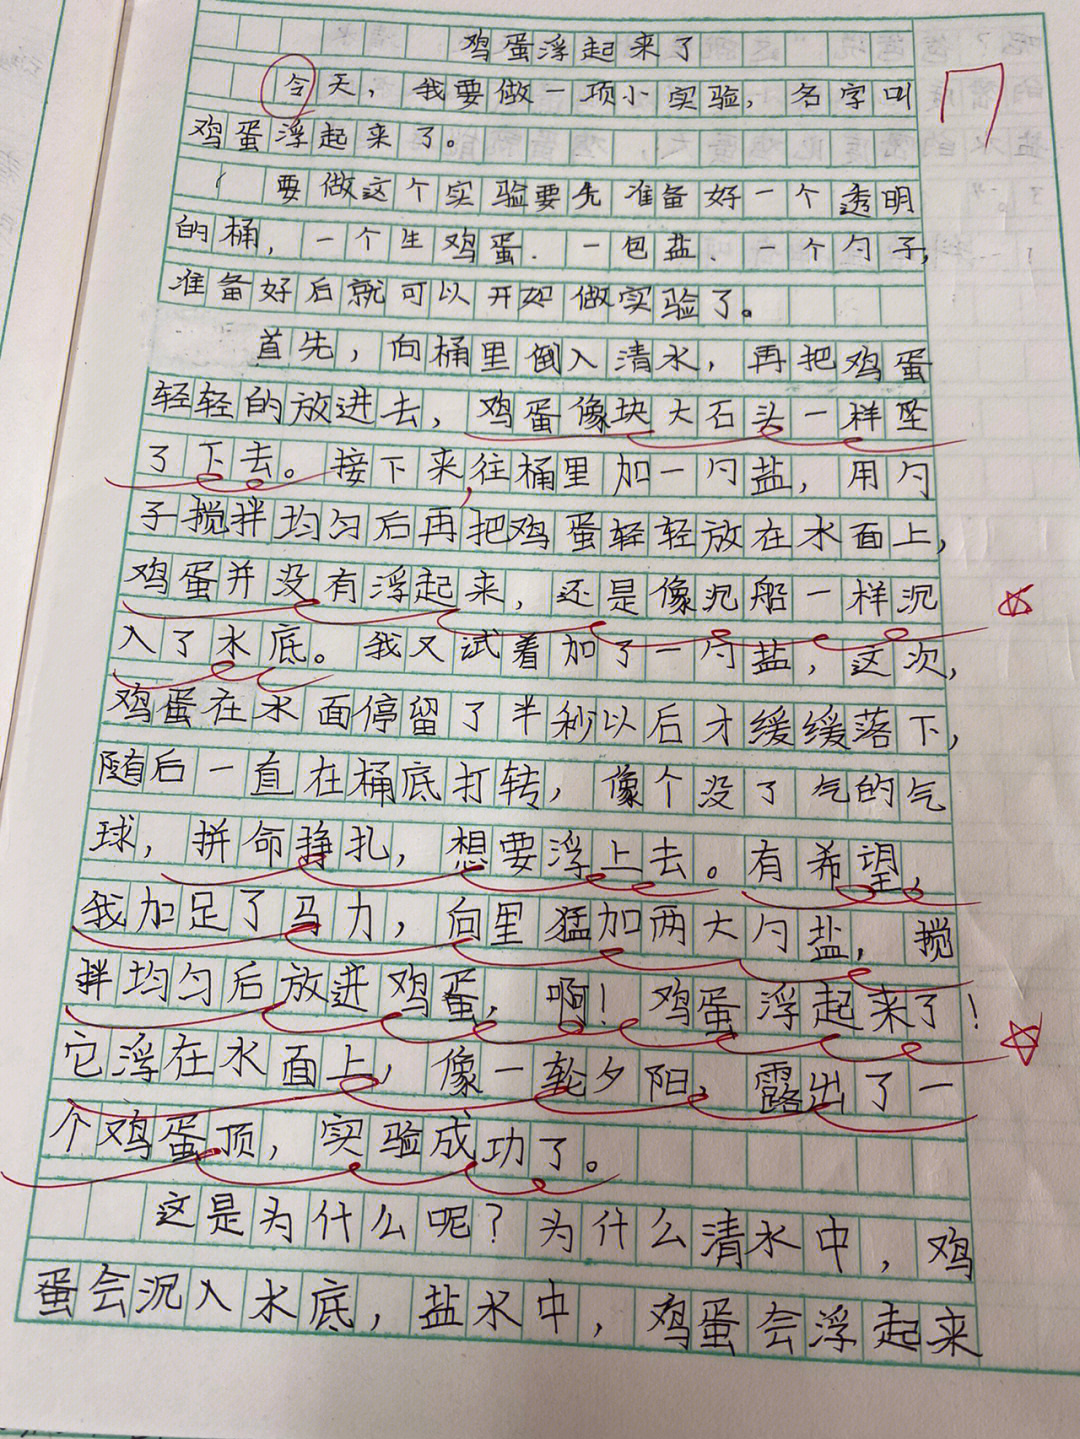 鸡蛋浮起来了
今天，我要做一项小实验，名字叫
鸡蛋浮起来了。
要做这个实验要先准备好一个透明
的桶，一个生鸡蛋、一包盐、一个勺子，
准备好后就可以开始做实验了。
首先，向桶里倒入清水，再把鸡蛋
轻轻的放进去，鸡蛋像块大石头一样坠
了下去。接下来，往桶里加一勺盐，用勺
子搅拌均匀后再把鸡蛋轻轻放在水面上，
鸡蛋并没有浮起来，还是像沉船一样沉
入了水底。我又试着加了一勺盐，这次，
鸡蛋在水面停留了半秒以后才缓缓落下，
随后一直在桶底打转，像个没了气的气
球，拼命挣扎，想要浮上去。有希望，
我加足了马力，向里猛加两大勺盐，搅
拌均匀后放进鸡蛋，啊！鸡蛋浮起来了！
它浮在水面上，像一轮夕阳，露出了一
个鸡蛋顶，实验成功了。
这是为什么呢？为什么清水中，鸡
蛋会沉入水底，盐水中，鸡蛋会浮起来